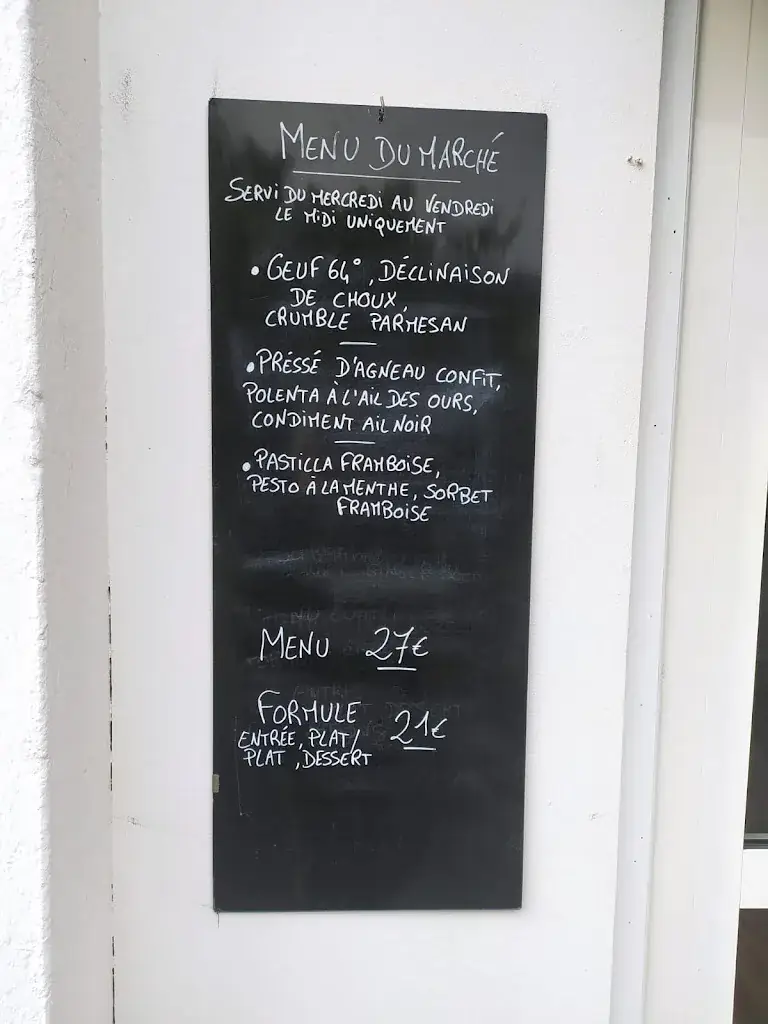 MENU DU MARCHÉ
SERVI DU MERCREDI AU VENDREDI
LE MIDI UNIQUEMENT
• ŒUF 64°, DÉCLINAISON
DE CHOUX,
CRUMBLE PARMESAN
• PRÉSSÉ D'AGNEAU CONFIT,
POLENTA À L'AIL DES OURS,
CONDIMENT AIL NOIR
• PASTILLA FRAMBOISE,
PESTO À LA MENTHE, SORBET
FRAMBOISE
MENU 27€
FORMULE 21€
ENTRÉE, PLAT /
PLAT, DESSERT